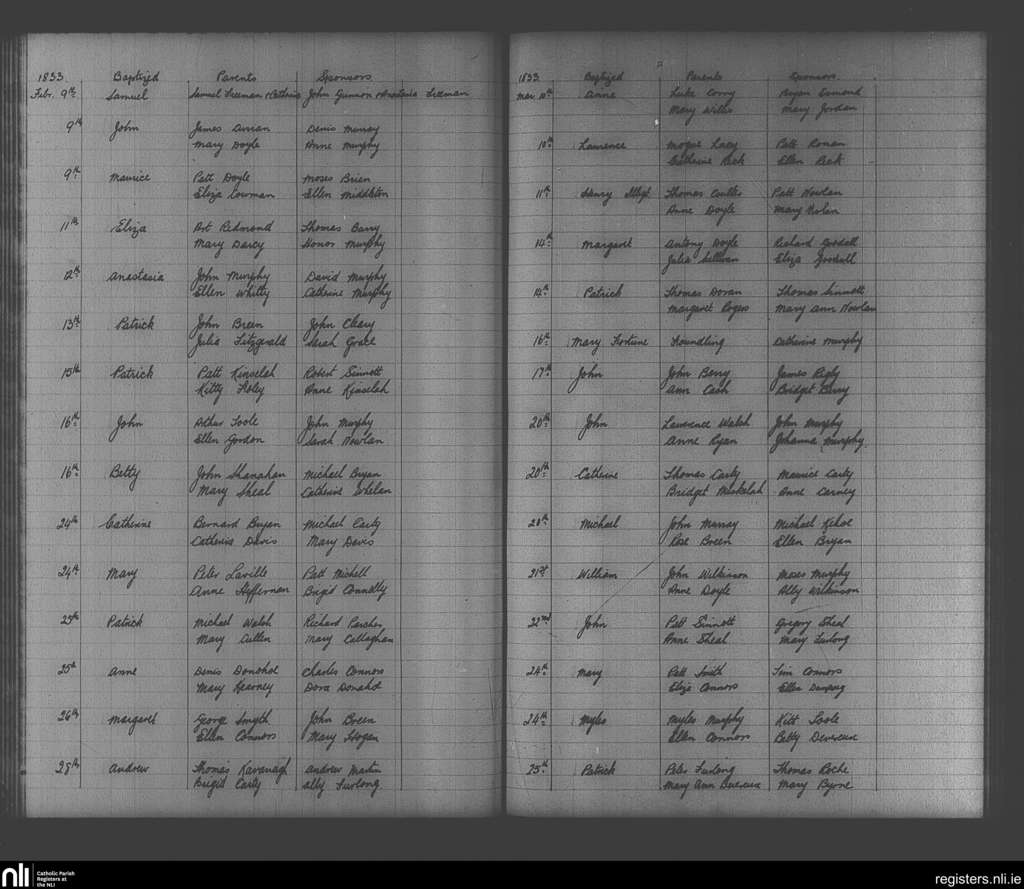 1833 Baptized Parents Sponsors
Febr. 9th Samuel Samuel Freeman Catherine John Gunnon Anastasia Freeman
9th John James Curran Denis Murray
Mary Doyle Anne Murphy
9th Maurice Patt Doyle Moses Brien
Eliza Cowman Ellen Middleton
11th Eliza Art Redmond Thomas Barry
Mary Darcy Honor Murphy
12th Anastasia John Murphy David Murphy
Ellen Whitty Catherine Murphy
13th Patrick John Breen John Cleary
Julia Fitzgerald Sarah Grace
15th Patrick Patt Kinselah Robert Sinnott
Kitty Foley Anne Kinselah
16th John Arthur Toole John Murphy
Ellen Gordon Sarah Nowlan
16th Betty John Shanahan Michael Bryan
Mary Sheal Catherine Whelan
24th Catherine Bernard Bryan Michael Carty
Catherine Davis Mary Davis
24th Mary Peter Laville Patt Michell
Anne Heffernan Brigid Connolly
25th Patrick Michael Walsh Richard
Mary Cullen Mary Callaghan
25th Anne Denis Donohoe Charles Connors
Mary Kearney Dora Donahoe
26th Margaret George Smyth John Breen
Ellen Connors Mary Hogan
28th Andrew Thomas Kavanagh Andrew Martin
Brigid Carty Ally Furlong
1833 Baptized Parents Sponsors
Mar. 10th Anne Luke Corry Bryan Esmond
Mary Willis Mary Jordan
10th Laurence Mogue Lacy Patt Ronan
Catherine Peck Ellen Peck
11th Henry Illegt. Thomas Coulter Patt Nowlan
Anne Doyle Mary Nolan
14th Margaret Antony Doyle Richard Goodall
Julia Sullivan Eliza Goodall
14th Patrick Thomas Doran Thomas Sinnott
Margaret Rogers Mary Ann Nowlan
16th Mary Fortune Foundling Catherine Murphy
17th John John Berry James Rigly
Ann Cash Bridget Berry
20th John Laurence Walsh John Murphy
Anne Ryan Johanna Murphy
20th Catherine Thomas Carty Maurice Carty
Bridget Miskelah Anne Carney
20th Michael John Murray Michael Kehoe
Rose Breen Ellen Bryan
21st William John Wilkinson Moses Murphy
Anne Doyle Ally Wilkinson
22nd John Patt Sinnott Gregory Sheal
Anne Sheal Mary Furlong
24th Mary Patt Smith Tim Connors
Eliza Connors Ellen Dempsey
24th Myles Myles Murphy Kitt Toole
Ellen Connors Betty Devereux
25th Patrick Peter Furlong Thomas Roche
Mary Ann Devereux Mary Byrne
nli Catholic Parish
Registers at
the NLI
registers.nli.ie